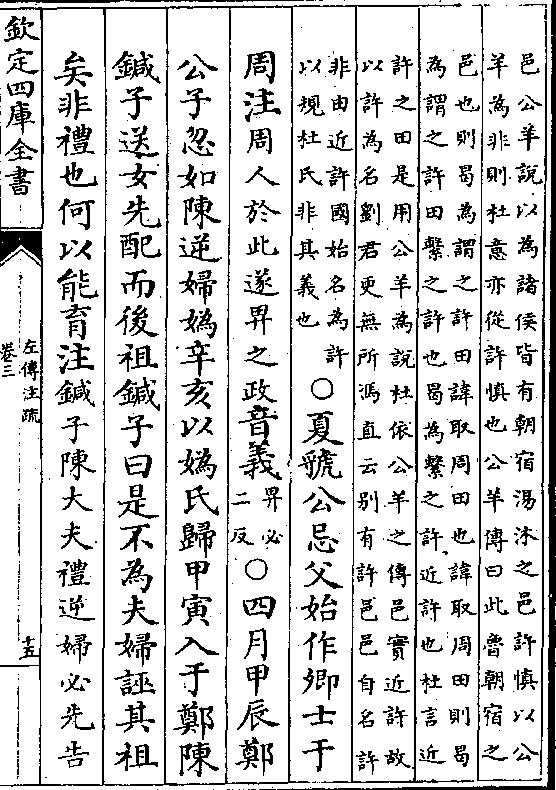 邑公羊說以為諸侯皆有朝宿湯沐之邑許慎以公
羊為非則杜意亦從許慎也公羊傳曰此魯朝宿之
邑也則曷為謂之許田諱取周田也諱取周田則曷
為謂之許田繫之許也曷為繫之許近許也杜言近
許之田是用公羊為說杜依公羊之傳邑實近許故
以許為名劉君更無所馮直云别有許邑邑自名許
非由近許國始名為許
以規杜氏非其義也
○夏虢公忌父始作卿士于
周注周人於此遂畀之政音義畀必二反○四月甲辰鄭
公子忽如陳逆婦媯辛亥以媯氏歸甲寅入于鄭陳
鍼子送女先配而後祖鍼子曰是不為夫婦誣其祖
矣非禮也何以能育注鍼子陳大夫禮逆婦必先告
欽定四庫全書
左傳注疏
卷三
十五